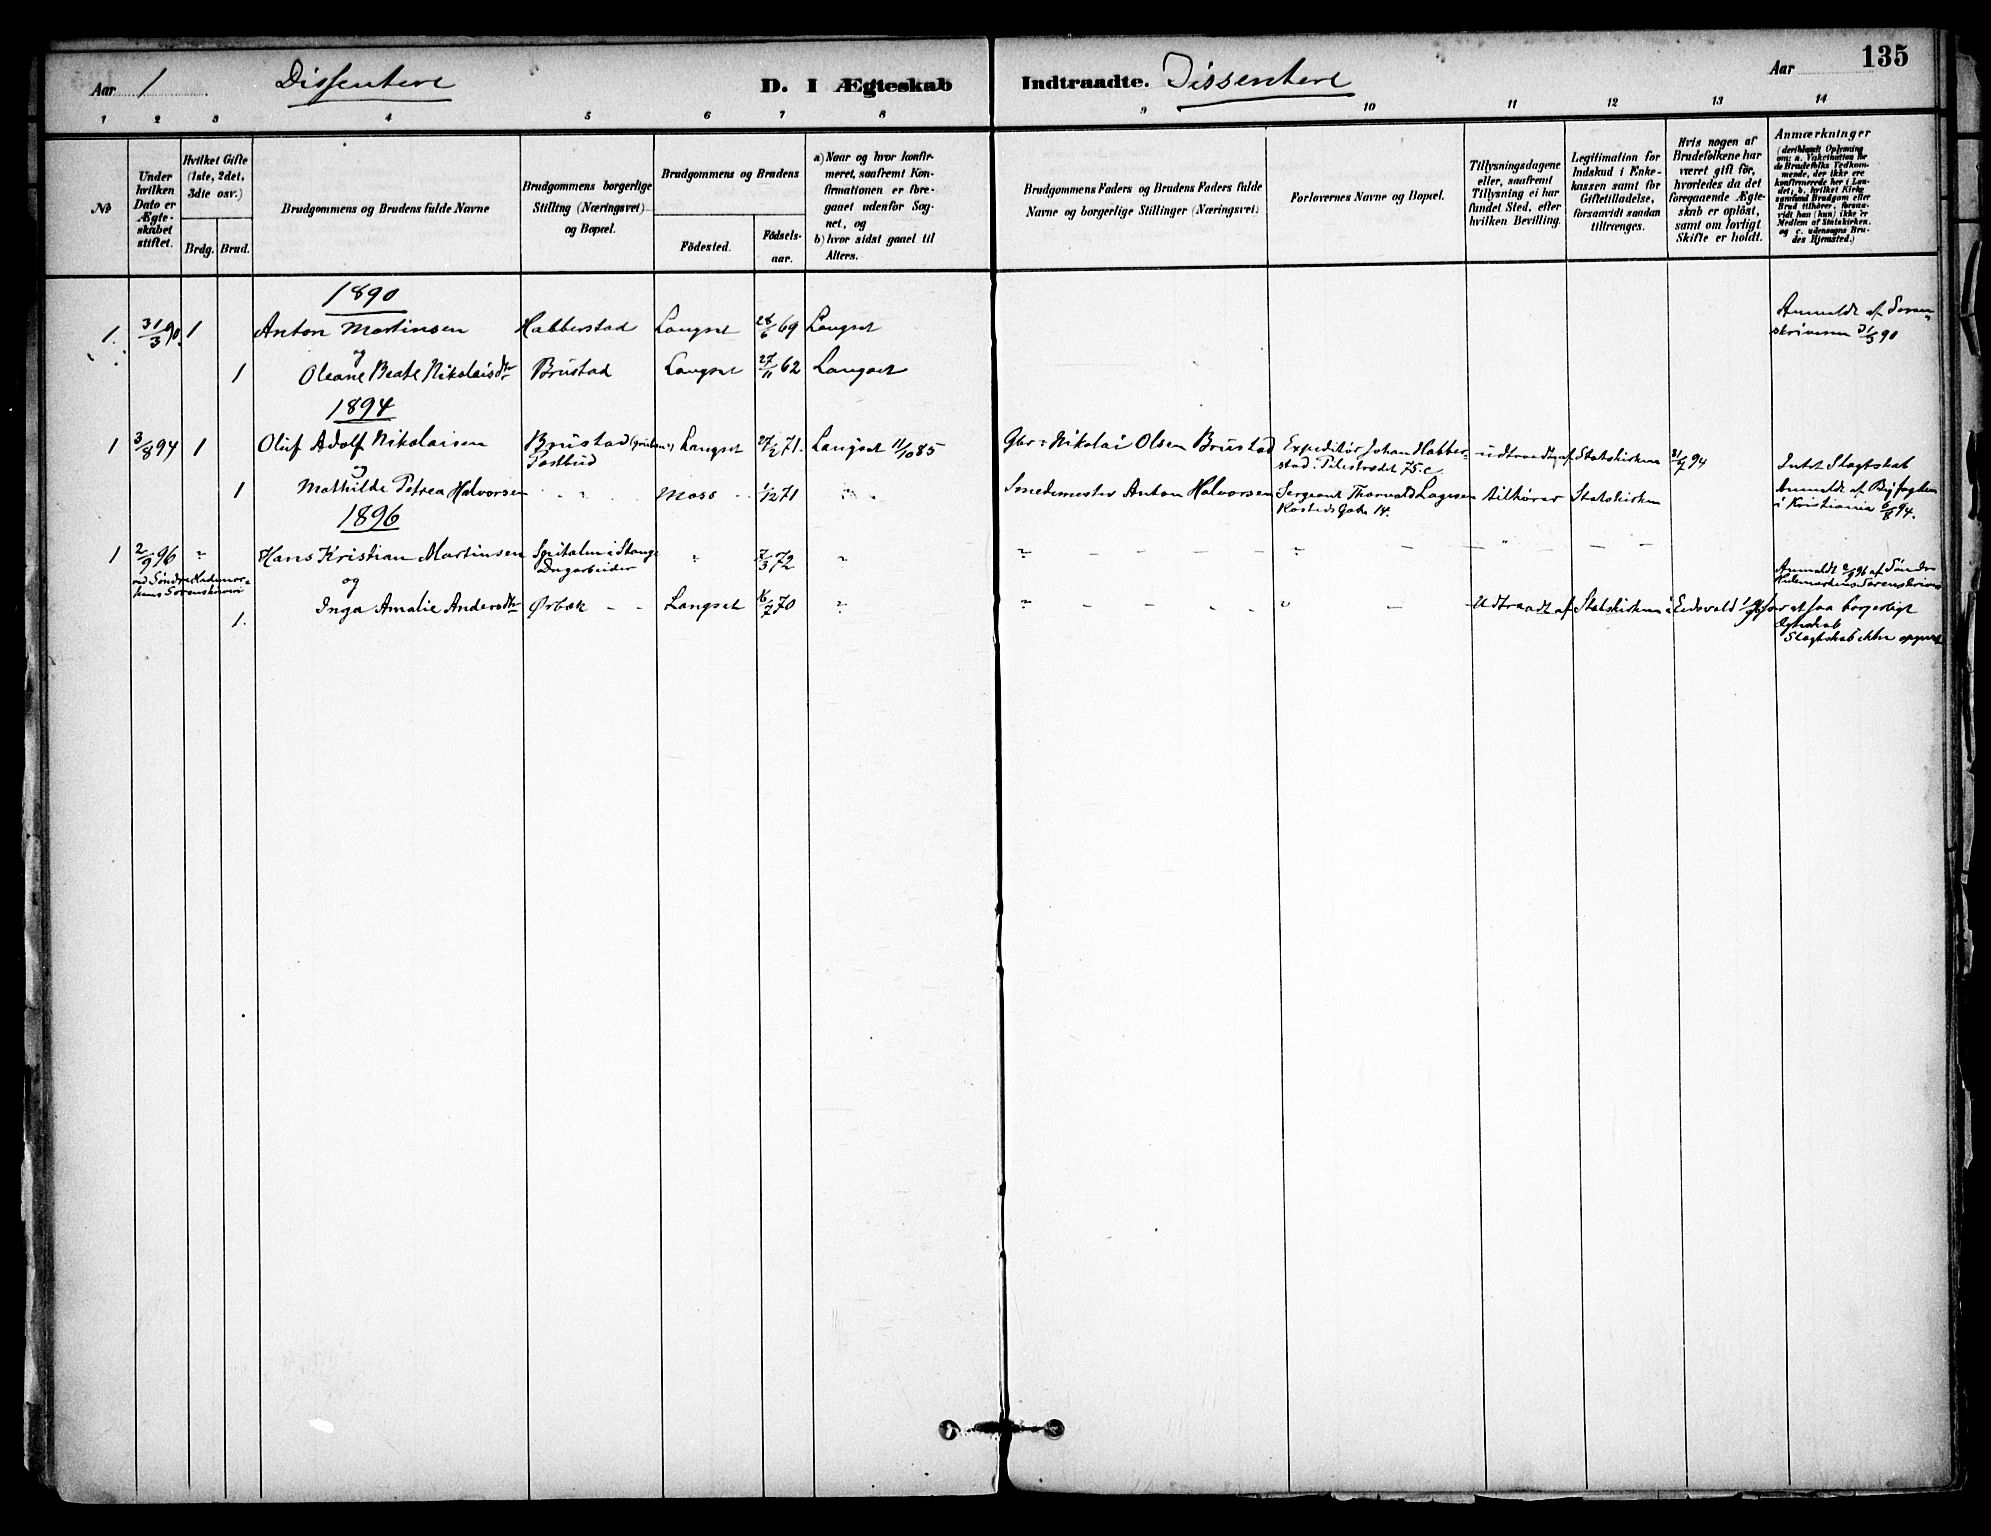 135
Aar 1 Dissentere D. I Ægteskab Indtraadte. Dissentere Aar
1 2 3 4 5 6 7 8 9 10 11 12 13 14
No
Under hvilken Dato er Ægteskabet stiftet.
Hvilket Gifte (1ste, 2det, 3die osv.)
Brdg. Brud.
Brudgommens og Brudens fulde Navne
Brudgommens borgerlige Stilling (Næringsvei) og Bopæl.
Brudgommens og Brudens
Födested.
Födsels-aar.
a) Naar og hvor konfirmeret, saafremt Konfirmationen er foregaaet udenfor Sognet, og
b) hvor sidst gaaet til Alters.
Brudgommens Faders og Brudens Faders fulde Navne og borgerlige Stillinger (Næringsvei)
Forlovernes Navne og Bopæl.
Tillysningsdagene eller, saafremt Tillysning ei har fundet Sted, efter hvilken Bevilling.
Legitimation for Indskud i Enkekassen samt for Giftetilladelse, forsaavidt saadan tiltrænges.
Hvis nogen af Brudefolkene har været gift før, hvorledes da det foregaaende Ægteskab er oplöst, samt om lovligt Skifte er holdt.
Anmærkninger
(deriblandt Oplysning om: a. Vakcination for de Brudefolks Vedkommende, der ikke ere konfirmerede her i Landet; b. hvilket Kirkesamfund Brudgom eller Brud tilhører, forsaavidt han (hun) ikke er Medlem af Statskirken, og c. udensogns Brudes Hjemsted.)
1890
1. 31/3 90. 1 Anton Martinsen Habberstad Langset 28/6 69 Langset Anmeldt af Soren-
skriveren 31/3 90
og
1 Oleane Beate Nikolaisdtr Brustad Langset 27/11 62 Langset
1894
1 3/8 94 1 Oluf Adolf Nikolaisen Brustad Langset 71. Langset 11/10 85 Gbr. Nikolai Olsen Brustad Expeditör Johan Habber-
Postbud stad. Pilestrædet 75.c. udtraadt af Statskirken 31/7 94 Intet Slægtskab
og
1 Mathilde Petrea Halvorsen " " Moss 1/12 71 " Smedemester Anton Halvorsen Sergeant Thorvald tilhører Statskirken Anmeldt af Byfogden
Gade 14. i Kristiania 6/8 94.
1896
1 2/9 96 " Hans Kristian Martinsen i Stange " 7/3 72 " " " "
ved Söndre Hedemarkens Sorenskriveri Dagarbeider Anmeldt 2/9 96 af Söndre
Hedemarkens Sorenskriveri
og
1. Inga Amalie Andersdtr Ørbæk Langset 16/7 70 " " " Udtraadt af Statskirken i Eidsvold 1/9 96 for at faa borgerligt
Ægteskab
Slægtskab ikke opgivet